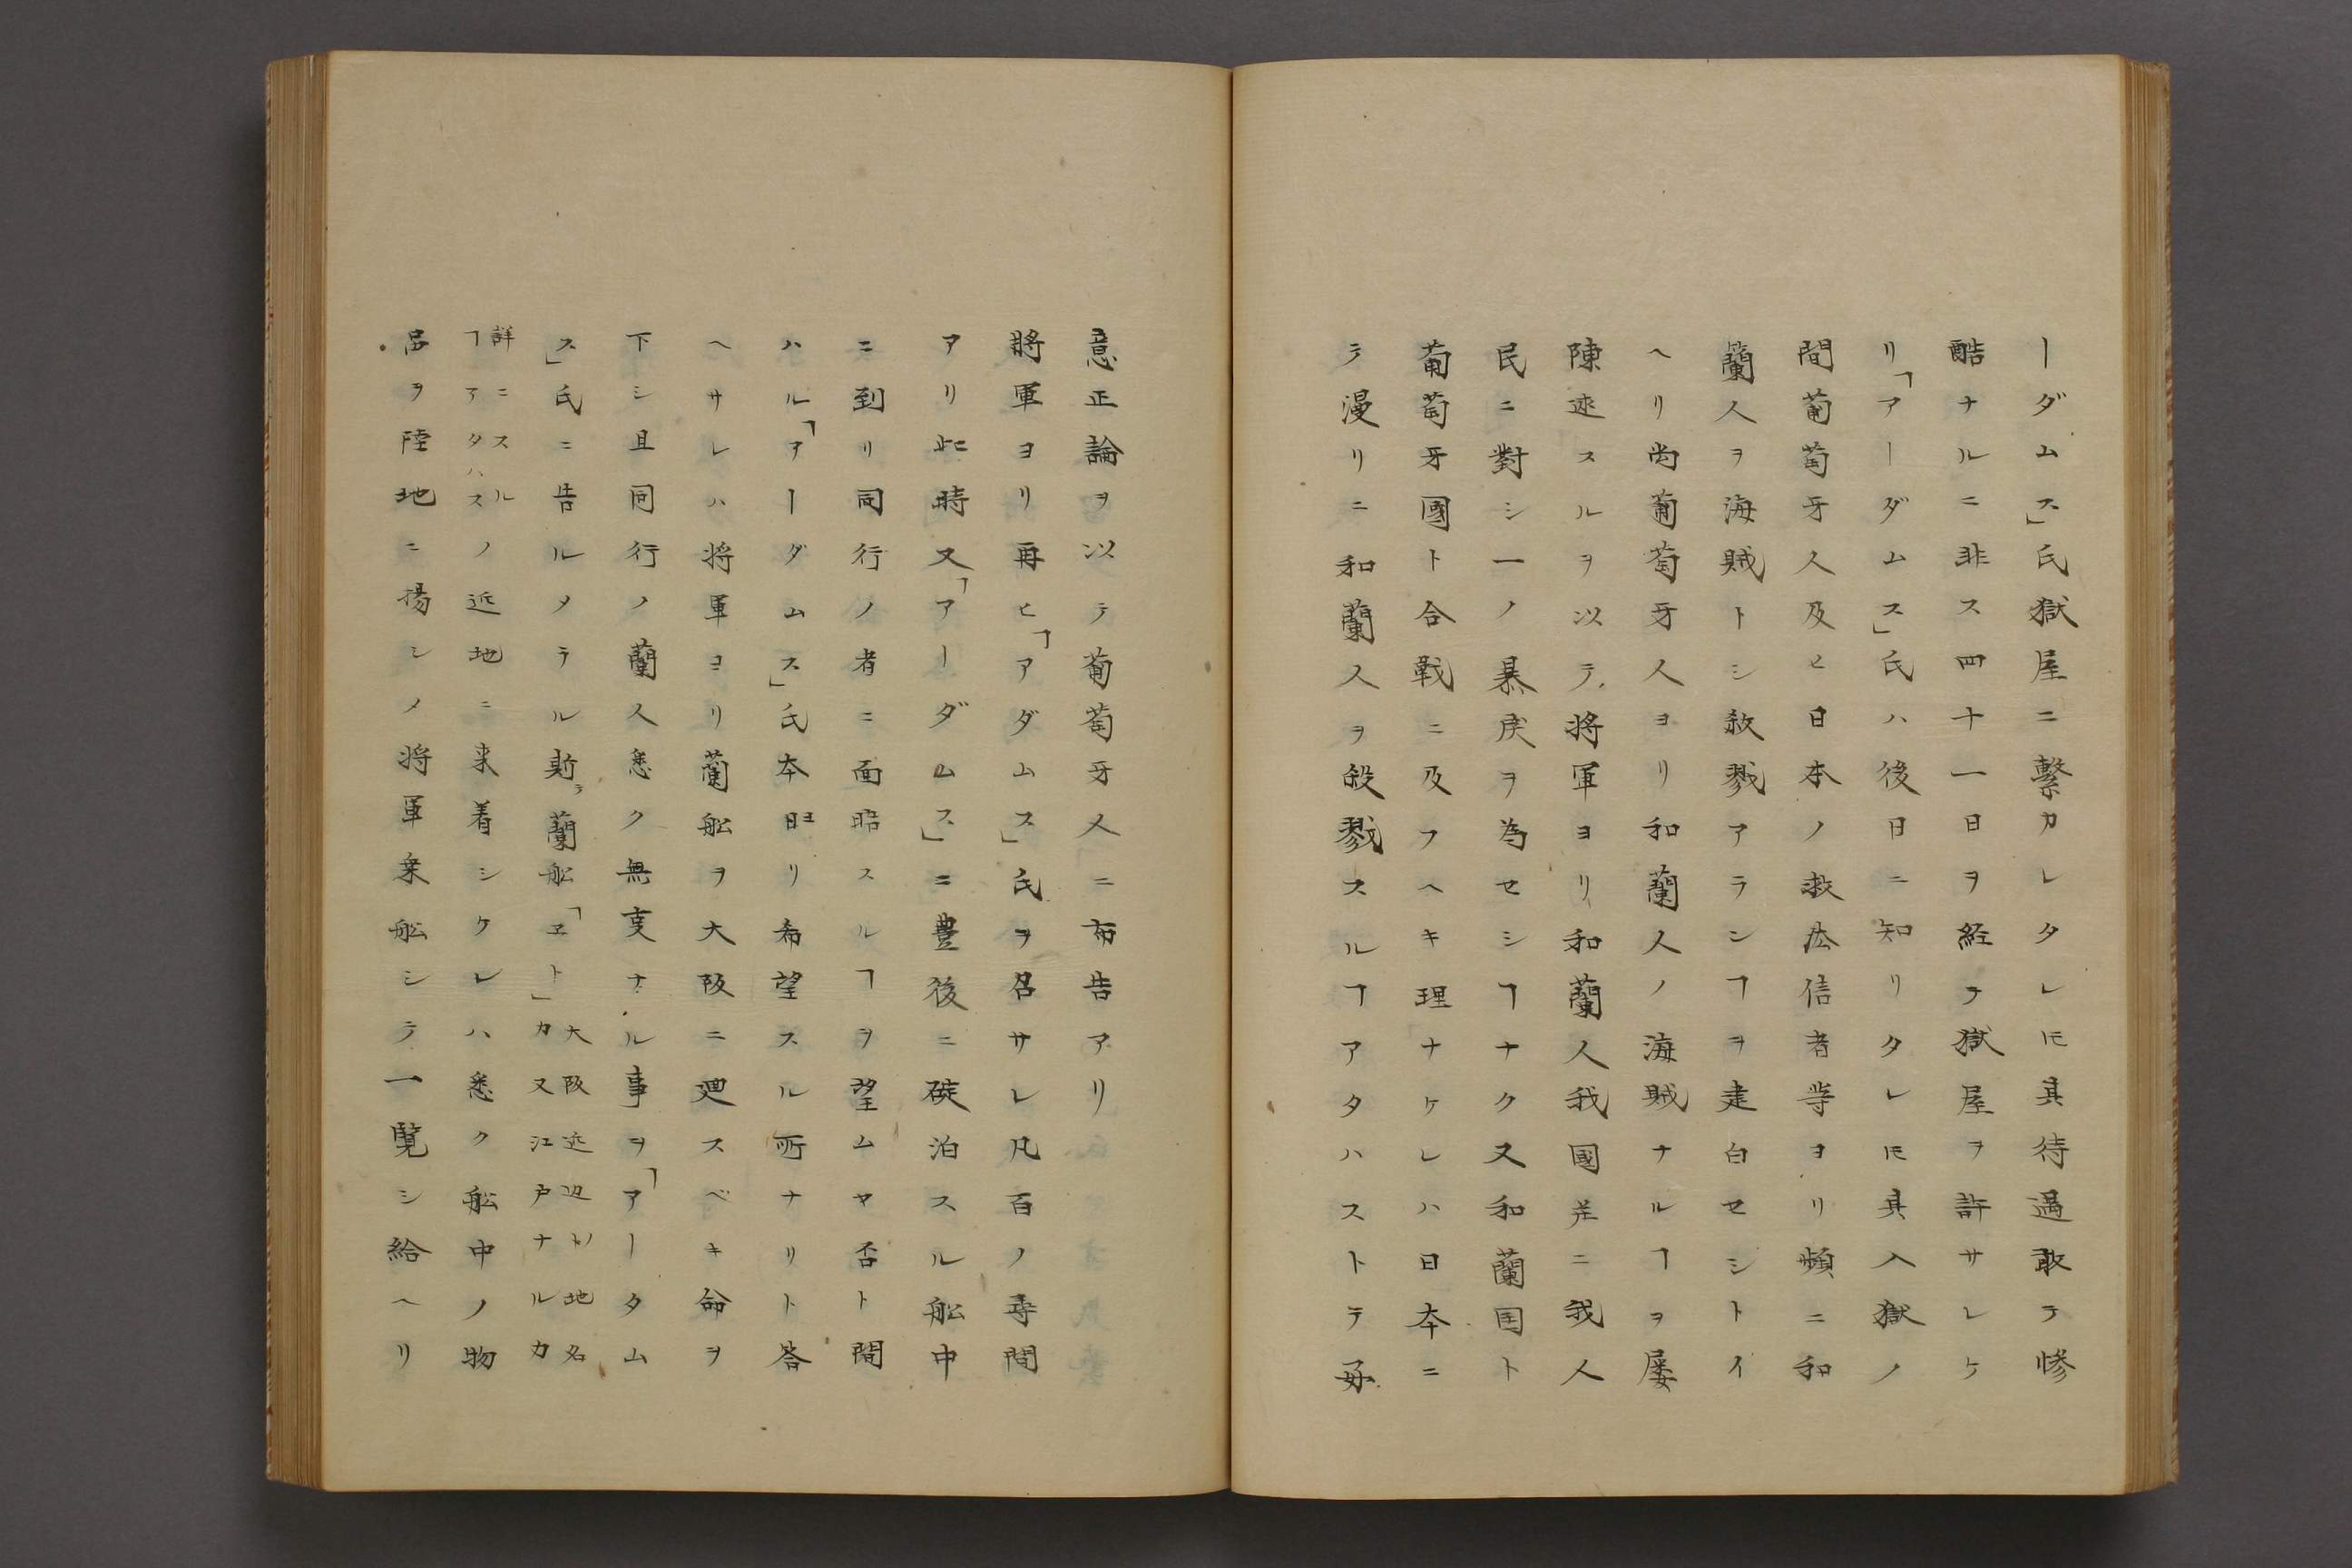 ーダムス」氏獄屋ニ繋カレタレ𪜈其待遇敢テ惨
酷ナルニ非ス四十一日ヲ経テ獄屋ヲ許サレケ
リ「アーダムス」氏ハ後日ニ知リタレ𪜈其入獄ノ
間葡萄牙人及ヒ日本ノ教法信者等ヨリ頻ニ和
蘭人ヲ海賊トシ殺戮アランヿヲ建白セシトイ
ヘリ尚葡萄牙人ヨリ和蘭人ノ海賊ナルヿヲ屡
陳述スルヲ以テ将軍ヨリ和蘭人我國并ニ我人
民ニ對シ一ノ暴戻ヲ為セシヿナク又和蘭国ト
葡萄牙國ト合戦ニ及フヘキ理ナケレハ日本ニ
テ漫リニ和蘭人ヲ殺戮スルヿアタハストテ好
意正論ヲ以テ葡萄牙人ニ布告アリ
將軍ヨリ再ヒ「アダムス」氏ヲ召サレ凡百ノ尋問
アリ此時又「アーダムス」ニ豊後ニ碇泊スル船中
ニ到リ同行ノ者ニ面晤スルヿヲ望ムヤ否ト問
ハル「アーダムス」氏本日ヨリ希望スル所ナリト答
ヘサレハ将軍ヨリ蘭船ヲ大阪ニ廻スベキ命ヲ
下シ且同行ノ蘭人悉ク無変ナル事ヲ「アータム
ス」氏ニ告ルメテル斯テ蘭船「ヱト」大阪近辺ノ地名カ又江戸ナルカ
詳ニスルヿアタハスノ近地ニ来着シケレハ悉ク船中ノ物
品ヲ陸地ニ揚シメ将軍乗船シテ一覧シ給ヘリ